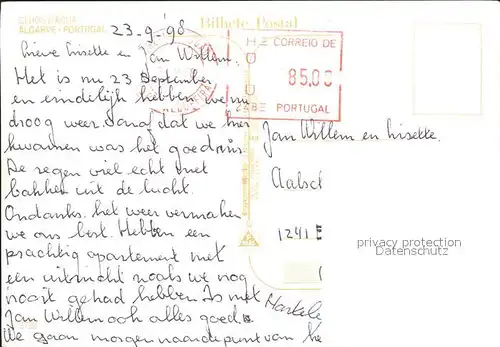 23-9-'98
ALGARVE - PORTUGAL
Bilhete Postal
CORREIO DE
85,00
PORTUGAL
Lieve Lisette en Jan Willem.
Het is nu 23 September
en eindelijk hebben we nu
droog weer. Vanaf dat we hier
kwamen was het goed mis.
De regen viel echt met
bakken uit de lucht.
Ondanks het weer vermaken
we ons best. Hebben een
prachtig apartement met
een uitzicht zoals we nog
nooit gehad hebben. Is met
Jan Willem ook alles goed.
We gaan morgen naar de punt van he
Jan Willem en Lisette.
Aalsc
1241
Hartele
privacy protection
www.akpool.de